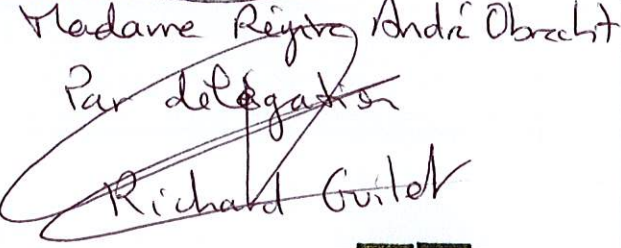 Madame Régine André Obrecht
Par délégation
Richard Guilet